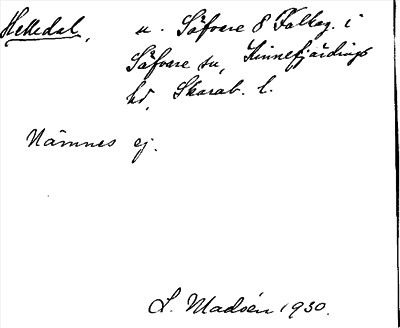 Helledal, u. Säfvare 8 Falbyg. i
Säfvare sn, Kinnefjärdings
hd, Skarab. l.
Nämnes ej.
L. Madsén 1930.